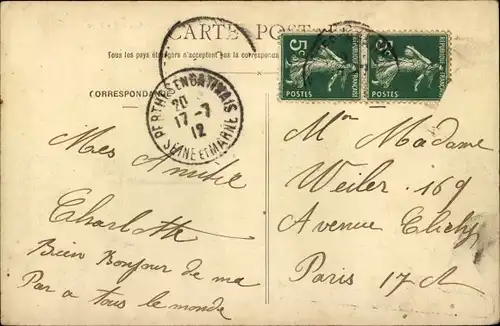 CARTE POSTALE
Tous les pays étrangers n'acceptent pas la correspondance
CORRESPONDANCE
5c
RÉPUBLIQUE FRANÇAISE
POSTES
5c
RÉPUBLIQUE FRANÇAISE
POSTES
PERTHES EN GATINAIS
20
17-7
12
SEINE ET MARNE
Mes Amitié
Charlotte
Bien Bonjour de ma
Par a tous le monde
Mr Madame
Weiler 169
Avenue Clichy
Paris 17